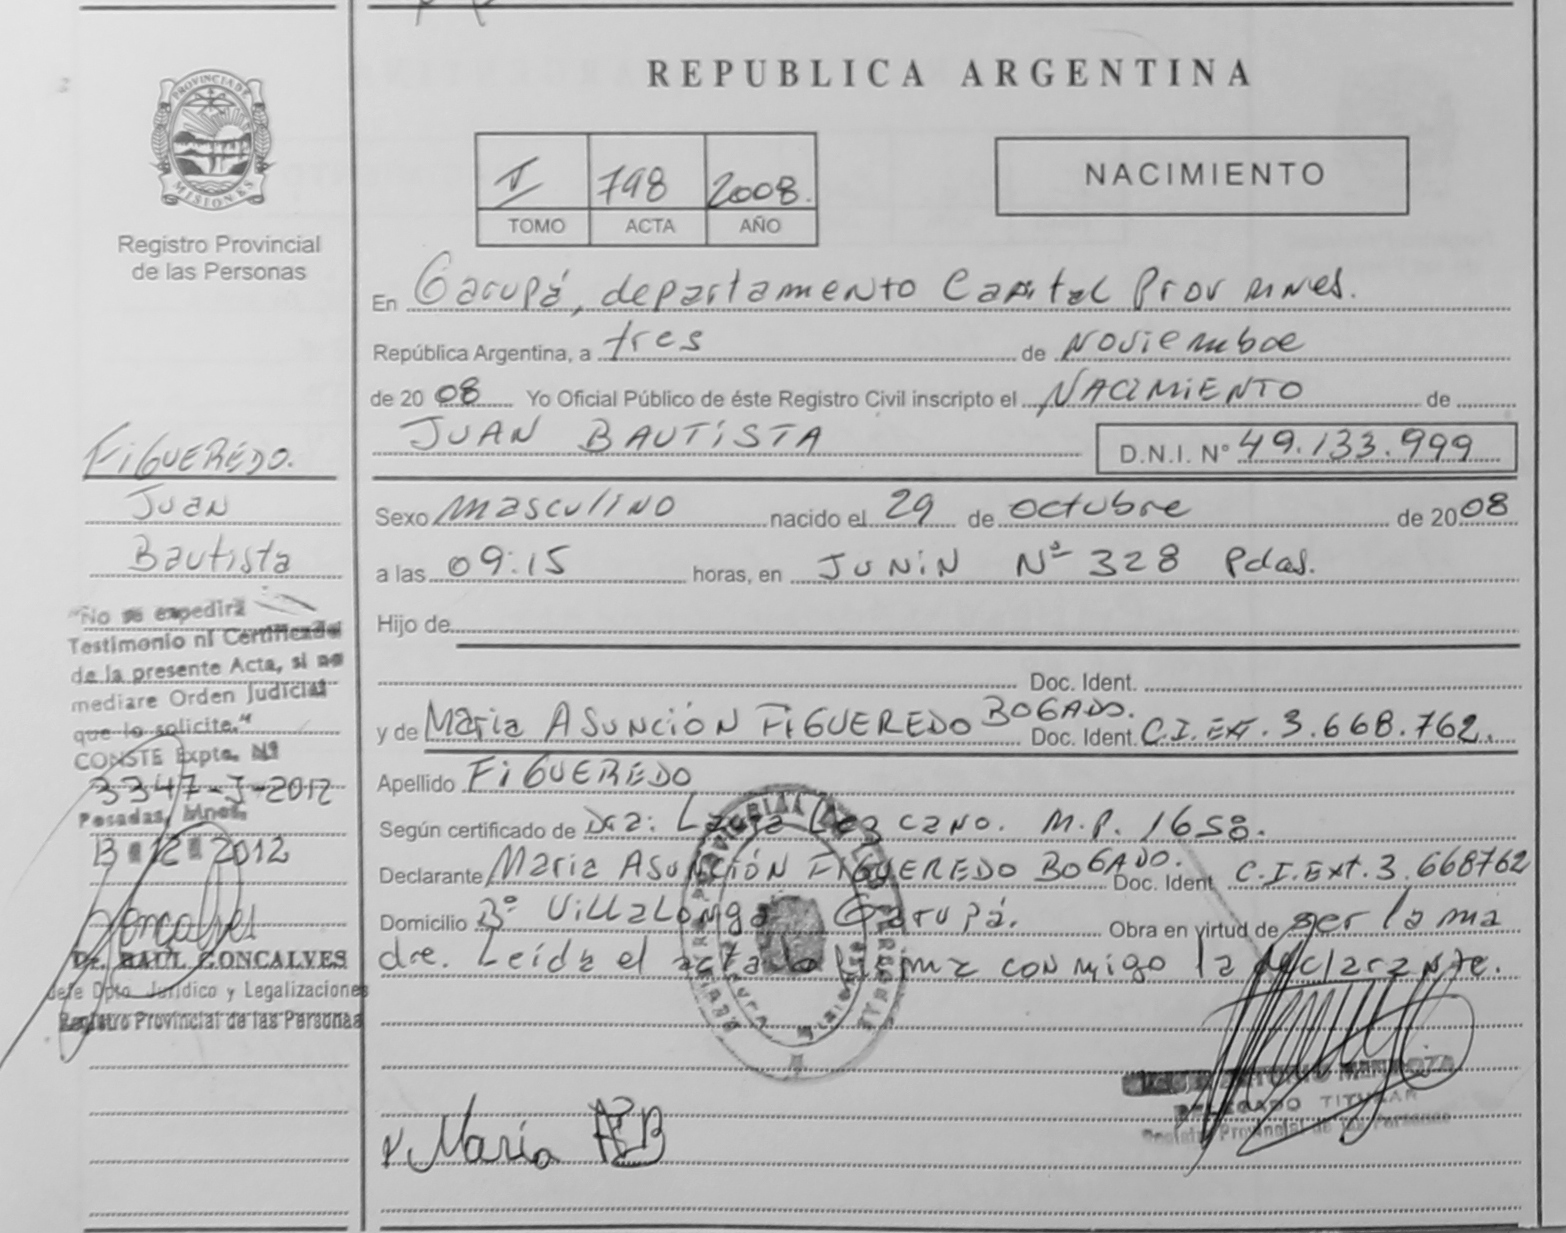 REPUBLICA ARGENTINA
PROVINCIA DE
MISIONES
Registro Provincial
de las Personas
I 798 2008.
TOMO ACTA AÑO
NACIMIENTO
En Garupá, departamento Capital Prov mnes.
República Argentina, a tres de Noviembre
de 20 08 Yo Oficial Público de éste Registro Civil inscripto el NACIMIENTO de
JUAN BAUTISTA D.N.I. N° 49.133.999
Sexo masculino nacido el 29 de octubre de 20 08
a las 09:15 horas, en JUNIN Nº 328 Pdas.
Hijo de
Doc. Ident.
y de Maria ASUNCIÓN FIGUEREDO BOGADO. Doc. Ident. C.I. Ext. 3.668.762.
Apellido FIGUEREDO
Según certificado de Dra: Laura Lezcano. M.P. 1658.
Declarante Maria ASUNCIÓN FIGUEREDO BOGADO. Doc. Ident C.I.Ext. 3.668762
Domicilio Bº Villalonga Garupá. Obra en virtud de ser la ma
dre. Leída el acta la firma conmigo la declarante.
María
DELEGADO TITULAR
Registro Provincial de las Personas
FIGUEREDO.
Juan
Bautista
"No se expedirá
Testimonio ni Certificado
de la presente Acta, si no
mediare Orden Judicial
que lo solicite."
CONSTE Expte. Nº
3347-J-2012
Posadas, Mnes.
13 12 2012
Goncalves
Dr. RAUL GONCALVES
Jefe Dpto. Jurídico y Legalizaciones
Registro Provincial de las Personas